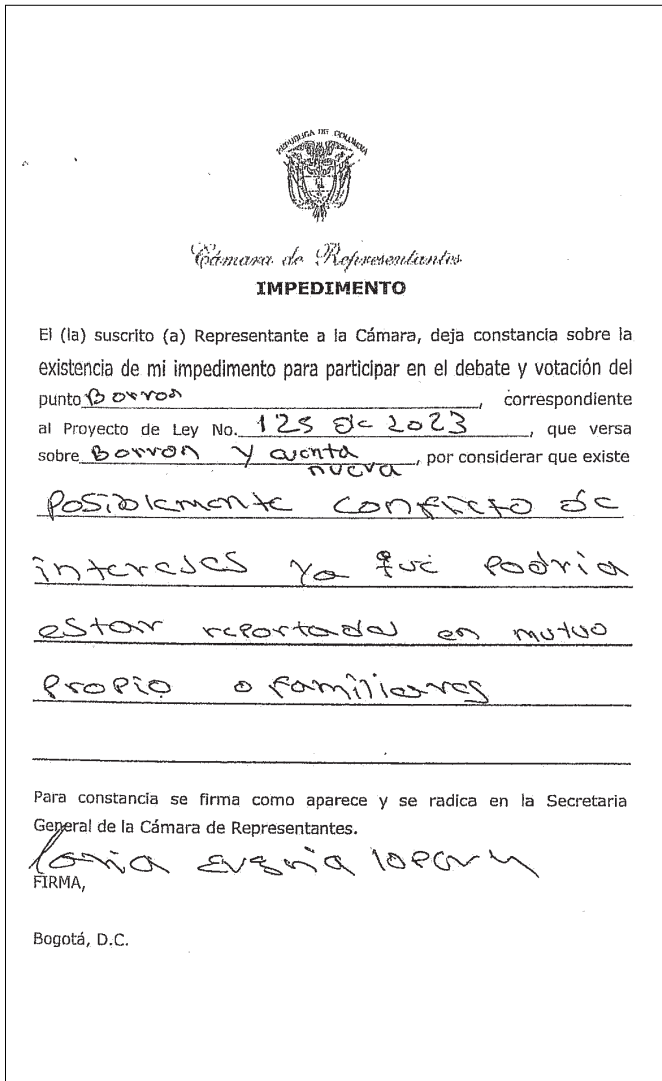 REPUBLICA DE COLOMBIA
Cámara de Representantes
IMPEDIMENTO
El (la) suscrito (a) Representante a la Cámara, deja constancia sobre la
existencia de mi impedimento para participar en el debate y votación del
punto Borron, correspondiente
al Proyecto de Ley No. 125 de 2023, que versa
sobre Borron y cuenta nueva, por considerar que existe
Posiblemente conflicto de
intereses ya que podria
estar reportados en mutuo
propio o familiares
Para constancia se firma como aparece y se radica en la Secretaria
General de la Cámara de Representantes.
Eugenia
FIRMA,
Bogotá, D.C.